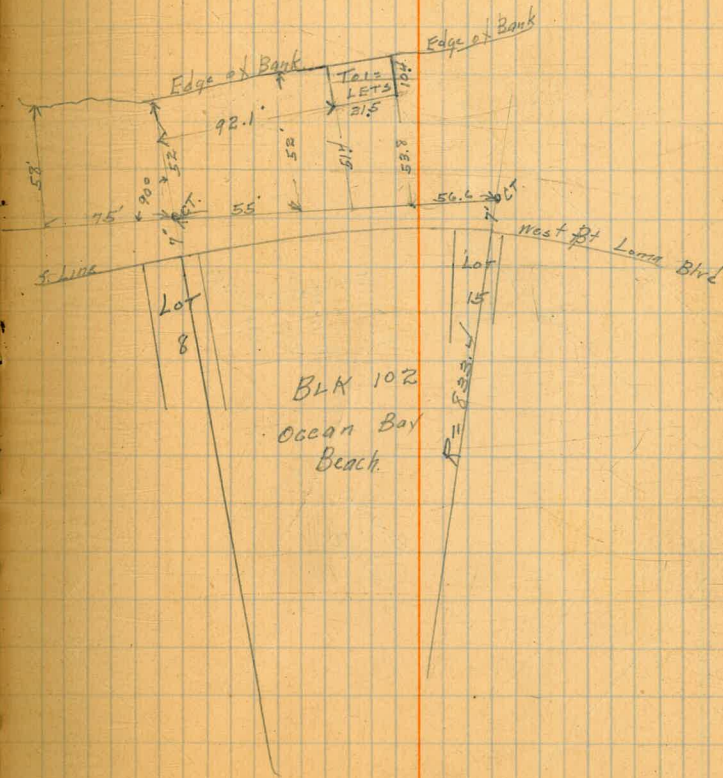 Edge of Bank
Edge of Bank
TOI=
LETS
10.4
21.5
92.1'
58'
52'
90°
52'
53.8
75'
55'
56.6
CT.
7'
7'
S. Line
West Pt Loma Blvd
LOT
8
LOT
15
R= 833.4
BLK 102
Ocean Bay
Beach.